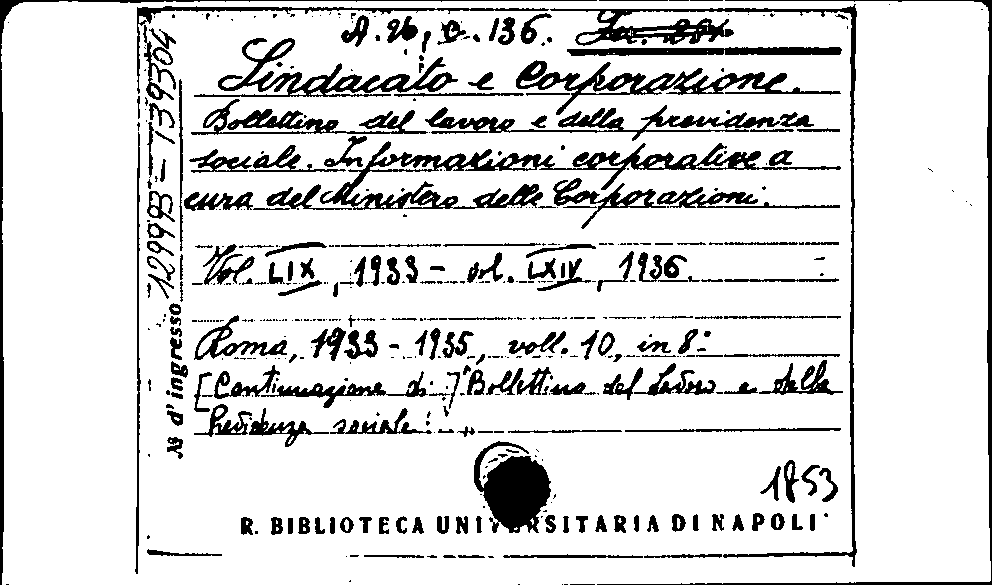 A. 26, C. 136.
Sindacato e Corporazione.
Bollettino del lavoro e della previdenza
sociale. Informazioni corporative a
cura del Ministero delle Corporazioni.
Vol. LIX, 1933 - vol. LXIV, 1936.
Roma, 1933 - 1935, voll. 10, in 8°
[Continuazione di] "Bollettino del Lavoro e della
Previdenza sociale: "
1853
R. BIBLIOTECA UNIVERSITARIA DI NAPOLI
No d'ingresso 129993 = 139304